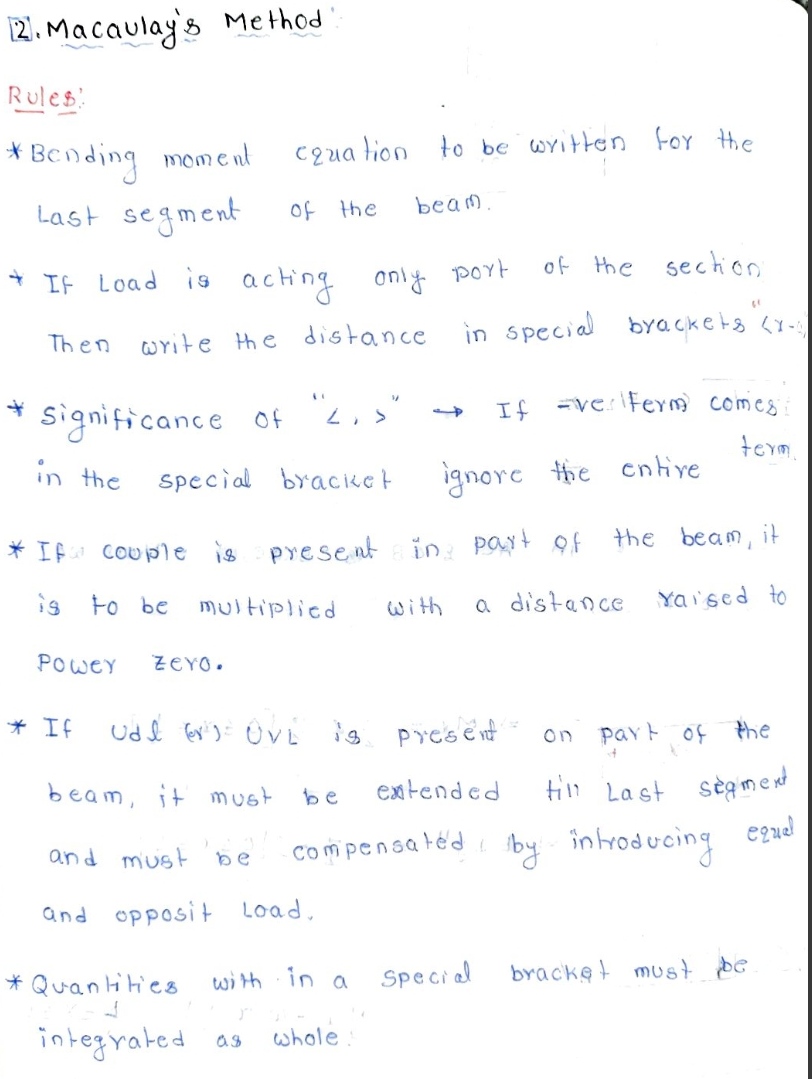 2. Macaulay's Method
Rules:
* Bending moment equation to be written for the
Last segment of the beam.
* If Load is acting only port of the section
Then write the distance in special brackets "<x-
* Significance of "<, >" → If -ve term comes
in the special bracket ignore the entire term.
* If couple is present in part of the beam, it
is to be multiplied with a distance raised to
Power zero.
* If Udl (or) UVL is present on part of the
beam, it must be extended till Last segment
and must be compensated by introducing equal
and opposit Load.
* Quantities with in a special bracket must be
integrated as whole.